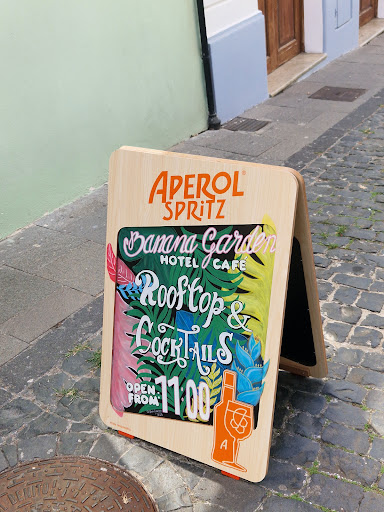 APEROL®
SPRiTZ
Banana Garden
HOTEL CAFÉ
Rooftop &
CockTAiLs
OPEN
FROM 11:00
A